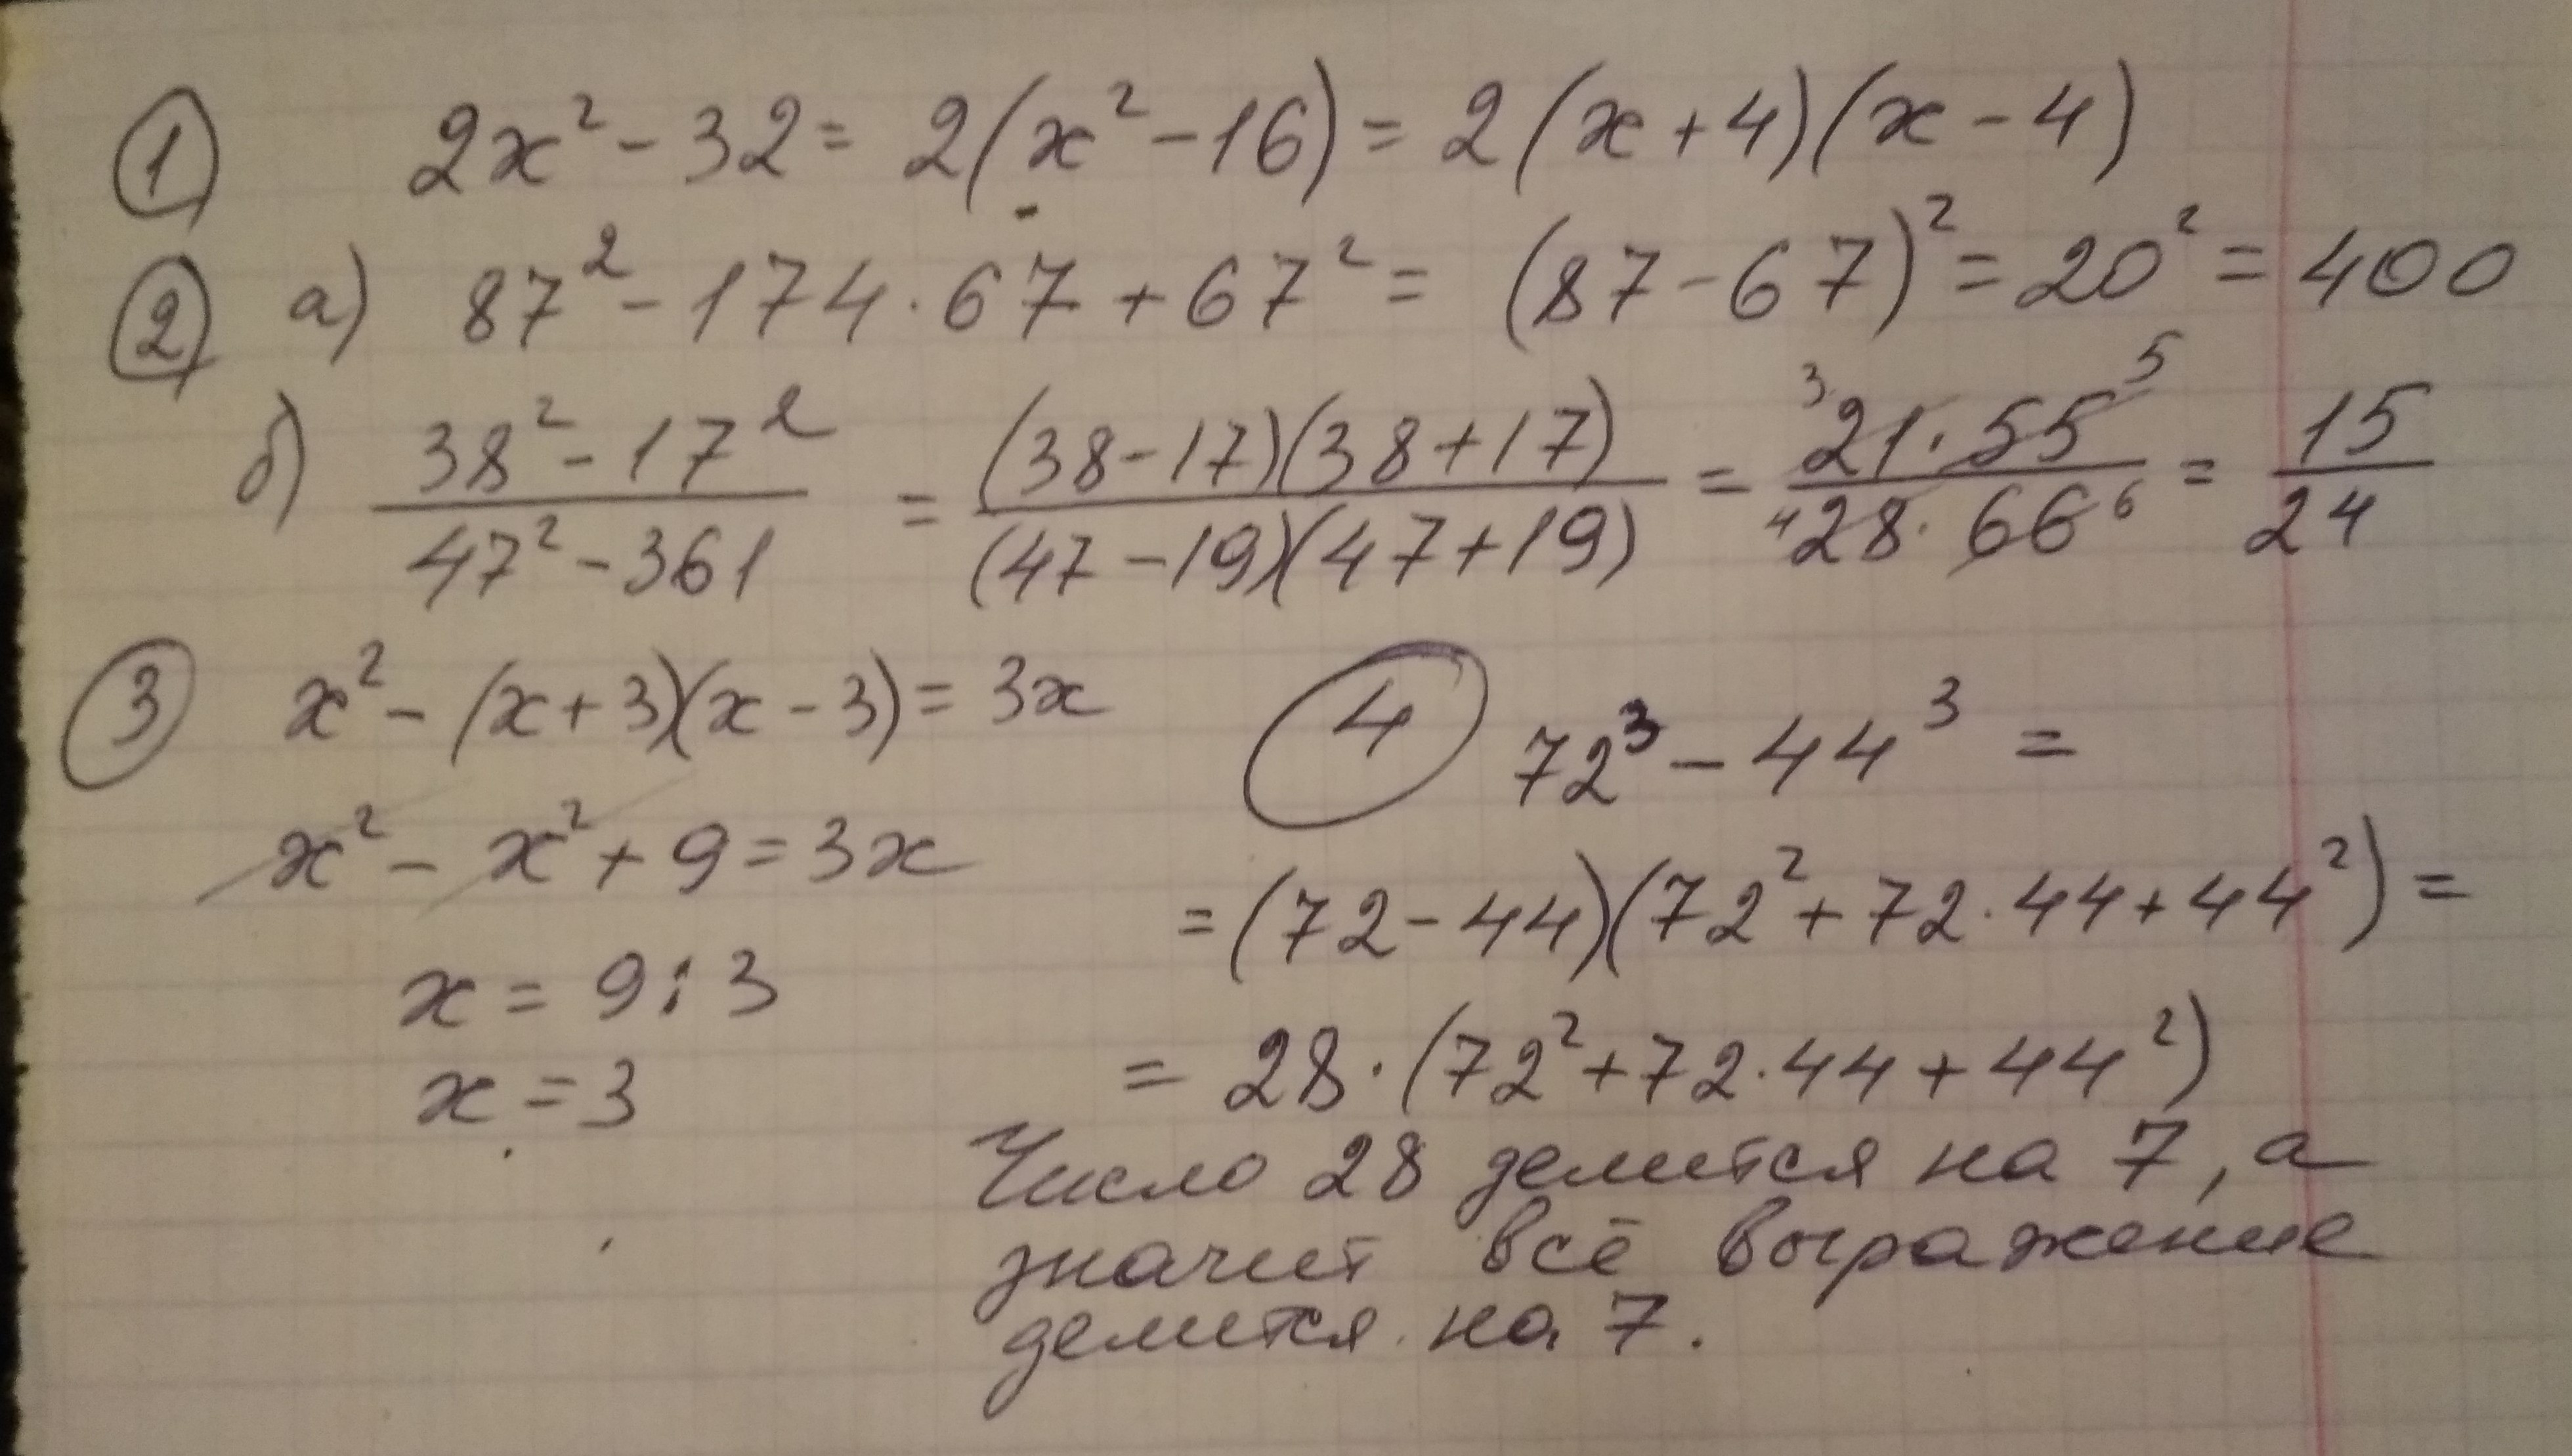 ① 2x² - 32 = 2(x² - 16) = 2(x + 4)(x - 4)
② а) 87² - 174 · 67 + 67² = (87 - 67)² = 20² = 400
б) (38² - 17²)/(47² - 361) = ((38 - 17)(38 + 17))/((47 - 19)(47 + 19)) = (³21 · 55⁵)/(⁴28 · 66⁶) = 15/24
③ x² - (x + 3)(x - 3) = 3x
x² - x² + 9 = 3x
x = 9 : 3
x = 3
④ 72³ - 44³ =
= (72 - 44)(72² + 72 · 44 + 44²) =
= 28 · (72² + 72 · 44 + 44²)
Число 28 делится на 7, а
значит всё выражение
делится на 7.